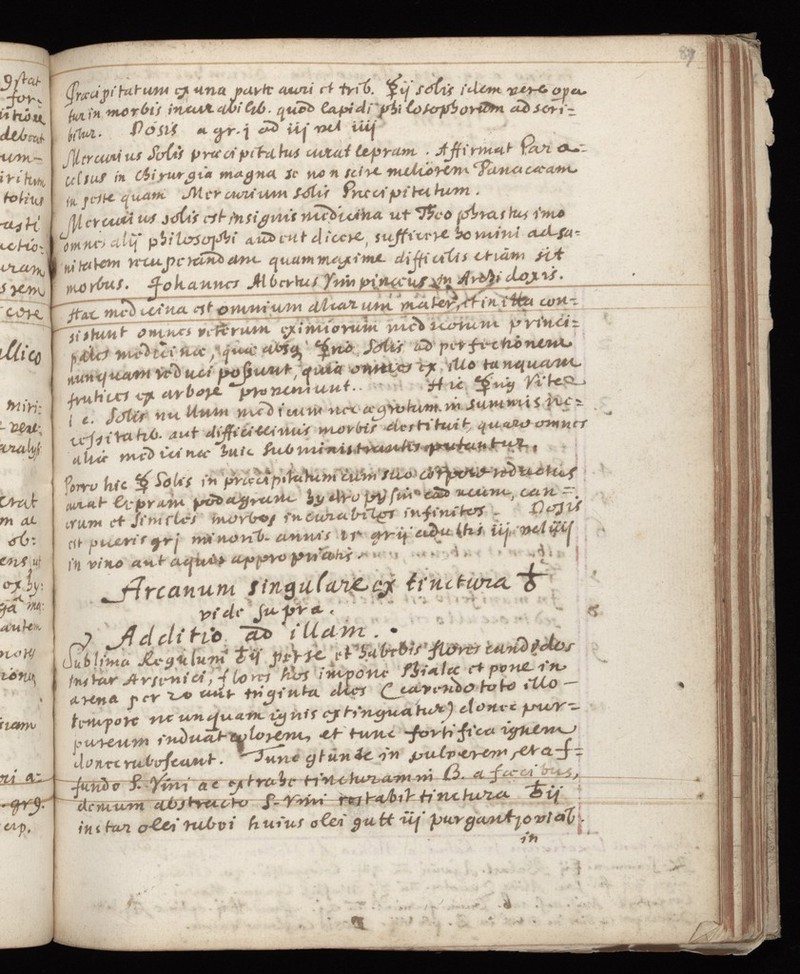 87
Præcipitatum ex una parte auri et trib. ☿ij solis idem vere opa
tur in morbis incurabilib. quod lapidi philosophorum adscri-
bitur. Dosis a gr. j ad iij vel iiij
Mercurius Solis præcipitatus curat lepram. Affirmat Para-
celsus in chirurgia magna se non scire meliorem Panacæam
in peste quam Mercurium solis Præcipitatum.
Mercurius solis est insignis medicina ut Theophrastus imo
omnes alij philosophi audent dicere, sufficere homini ad sa-
nitatem recuperandam quam maxime difficilis etiam sit
morbus. Johannes Albertus Vimpinæus in Archidoxis.
Hæc medicina est omnium aliarum mater, et in illa con-
sistunt omnes veterum eximiorum medicorum princi-
pales medicinæ, quæ absq ☿rio Solis ad perfectionem
nunquam reduci possunt, quia omnes ex illo tanquam
frutices ex arbore proveniunt. Hic ☿riq Vitæ
i e. Solis nullum medicum nec ægrotum in summis ne-
cessitatib. aut difficillimis morbis destituit quare omnes
aliæ medicinæ huic subministrantes putantur.
Porro hic ☿ Solis in præcipitatum cum suo corpore reductus
curat lepram podagram hydropysin caducum, can-
crum et similes morbos incurabiles infinitos. Dosis
est pueris gr j minorib. annis gr ij adultis iij vel iiij
in vino aut aquis appropriatis.
Arcanum singulare ex tinctura ♁
vide supra.
Additio ad illam.
Sublima Regulum ♁ij per se et habebis flores candidos
instar Arsenici, flores hos impone Phialæ et pone in
arena per 20 aut triginta dies (cavendo toto illo
tempore ne unquam ignis extinguatur) donec pur-
pureum induant colorem, et tunc fortifica ignem
donec rubescant. Tunc gtunde in pulverem, et af-
fundo S. Vini ac extrahe tincturam in B. a fæcibus,
demum abstracto S. Vini restabit tinctura ♁ij
instar olei rubei huius olei gutt iij purgant jovialib.
in